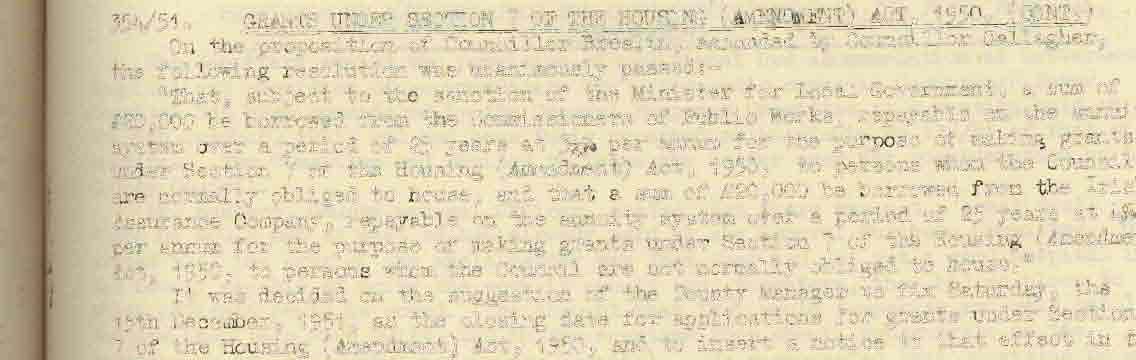 354/51. GRANTS UNDER SECTION 7 OF THE HOUSING (AMENDMENT) ACT, 1950. (CONT.)
On the proposition of Councillor Breslin, seconded by Councillor Gallagher,
the following resolution was unanimously passed:-
"That, subject to the sanction of the Minister for Local Government, a sum of
be borrowed from the Commissioners of Public Works, repayable on the
system over a period of 25 years at per annum for the purpose of making grants
under Section 7 of the Housing (Amendment) Act, 1950, to persons whom the Council
are normally obliged to house, and that a sum of £20,000 be borrowed from the
Assurance Company, repayable on the annuity system over a period of 25 years at
per annum for the purpose of making grants under Section 7 of the Housing (Amendme
Act, 1950, to persons whom the Council are not normally obliged to house."
It was decided on the suggestion of the County Manager to fix Saturday, the
15th December, 1951, as the closing date for applications for grants under Section
7 of the Housing (Amendment) Act, 1950, and to insert a notice to that effect in